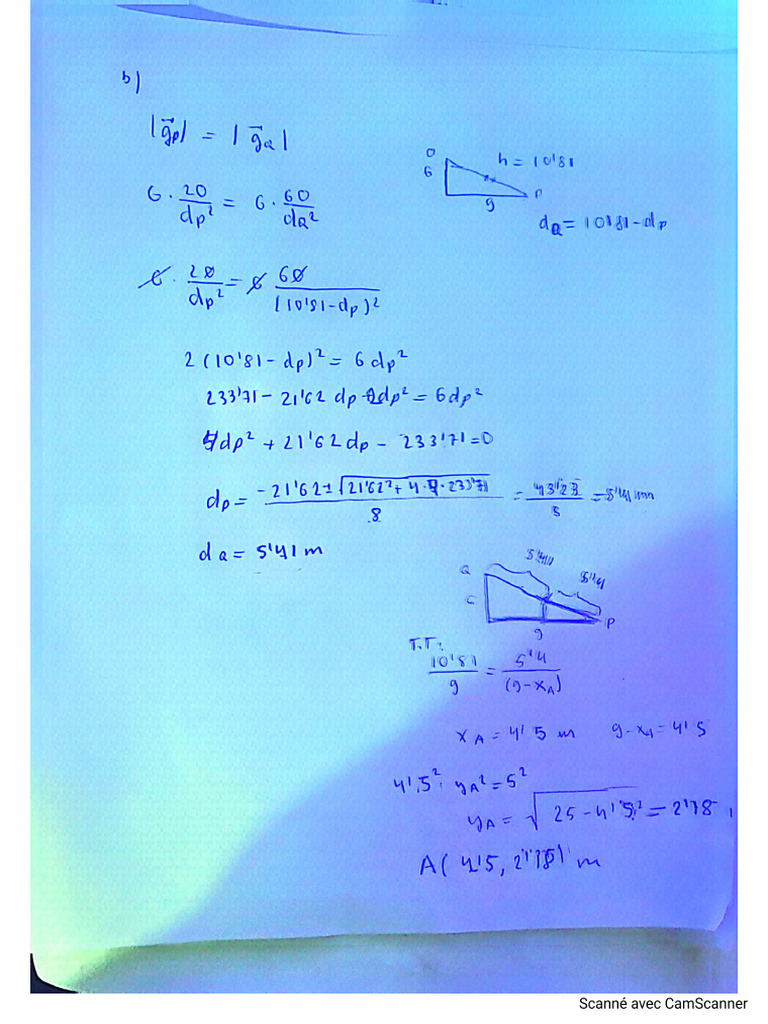 b)
|g⃗p| = |g⃗Q|
G · 20/dp² = G · 60/dQ²
O
6
h = 10'81
9
P
dQ = 10'81 - dp
G · 20/dp² = G 60/(10'81-dp)²
2 (10'81 - dp)² = 6 dp²
233'71 - 21'62 dp + 2dp² = 6dp²
4dp² + 21'62 dp - 233'71 = 0
dp = -21'62 ± √21'62² + 4·4·233'71 / 8 = 43'25/8 = 5'41 m
dQ = 5'41 m
Q
5'41
5'41
6
P
9
T.T:
10'81/9 = 5'41/(9-xA)
xA = 4'5 m 9-xA = 4'5
4'5² · yA² = 5²
yA = √25 - 4'5² = 2'18
A( 4'5, 2'18) m
Scanné avec CamScanner